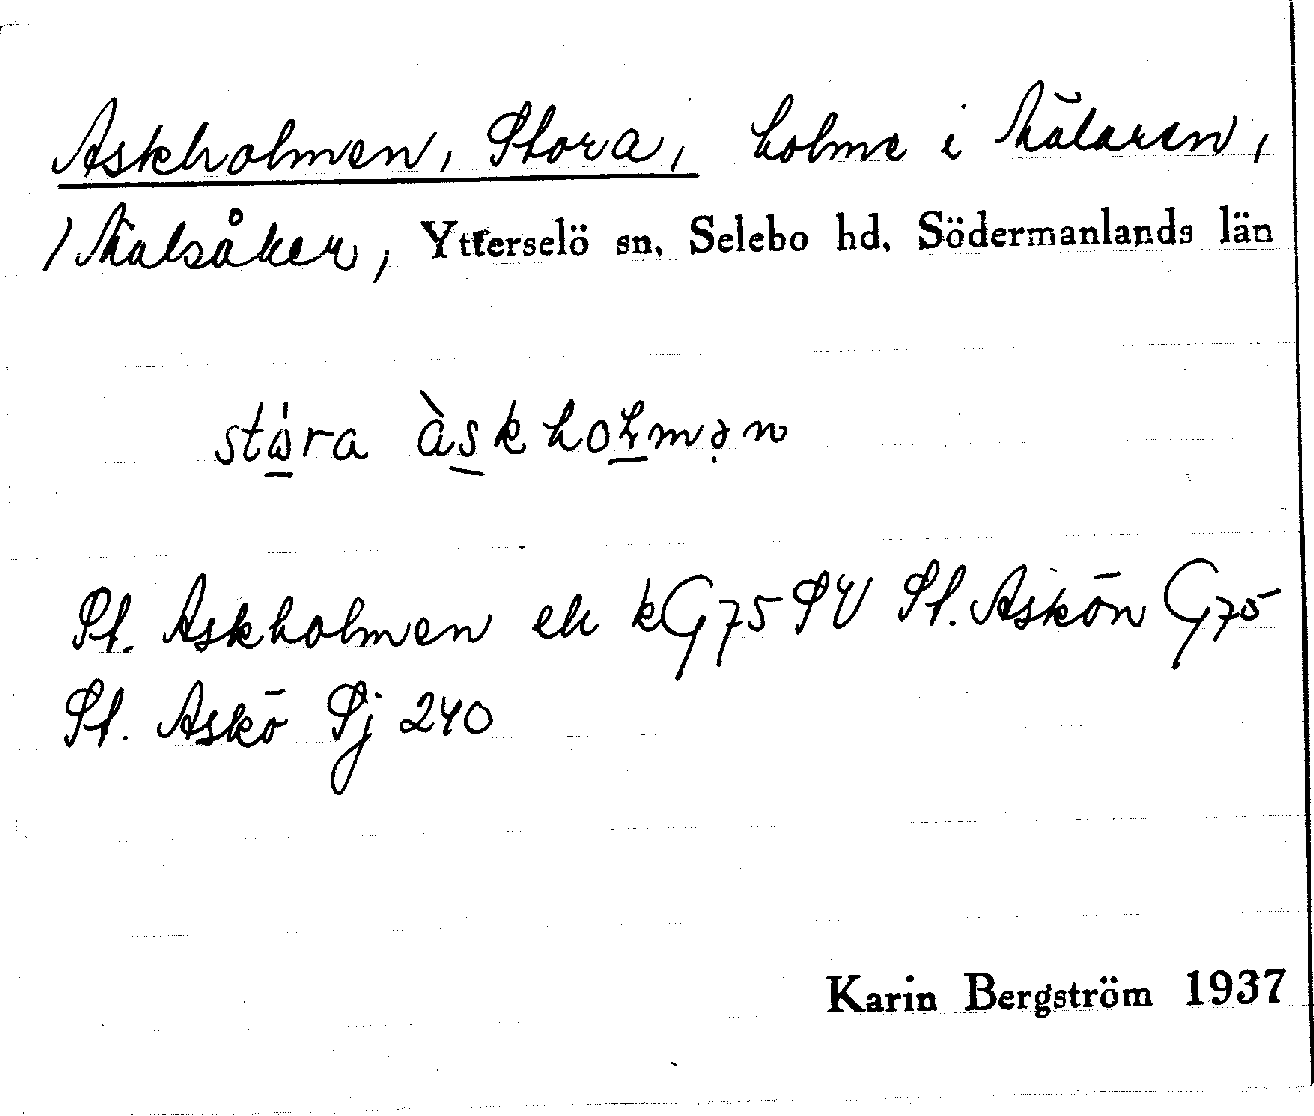 Askholmen, Stora, holme i Mälaren,
/ Malsåker, Ytterselö sn, Selebo hd, Södermanlands län
stóra àskholmən
St. Askholmen ek kG75 SV St. Askön G75
St. Askö Sj 240
Karin Bergström 1937